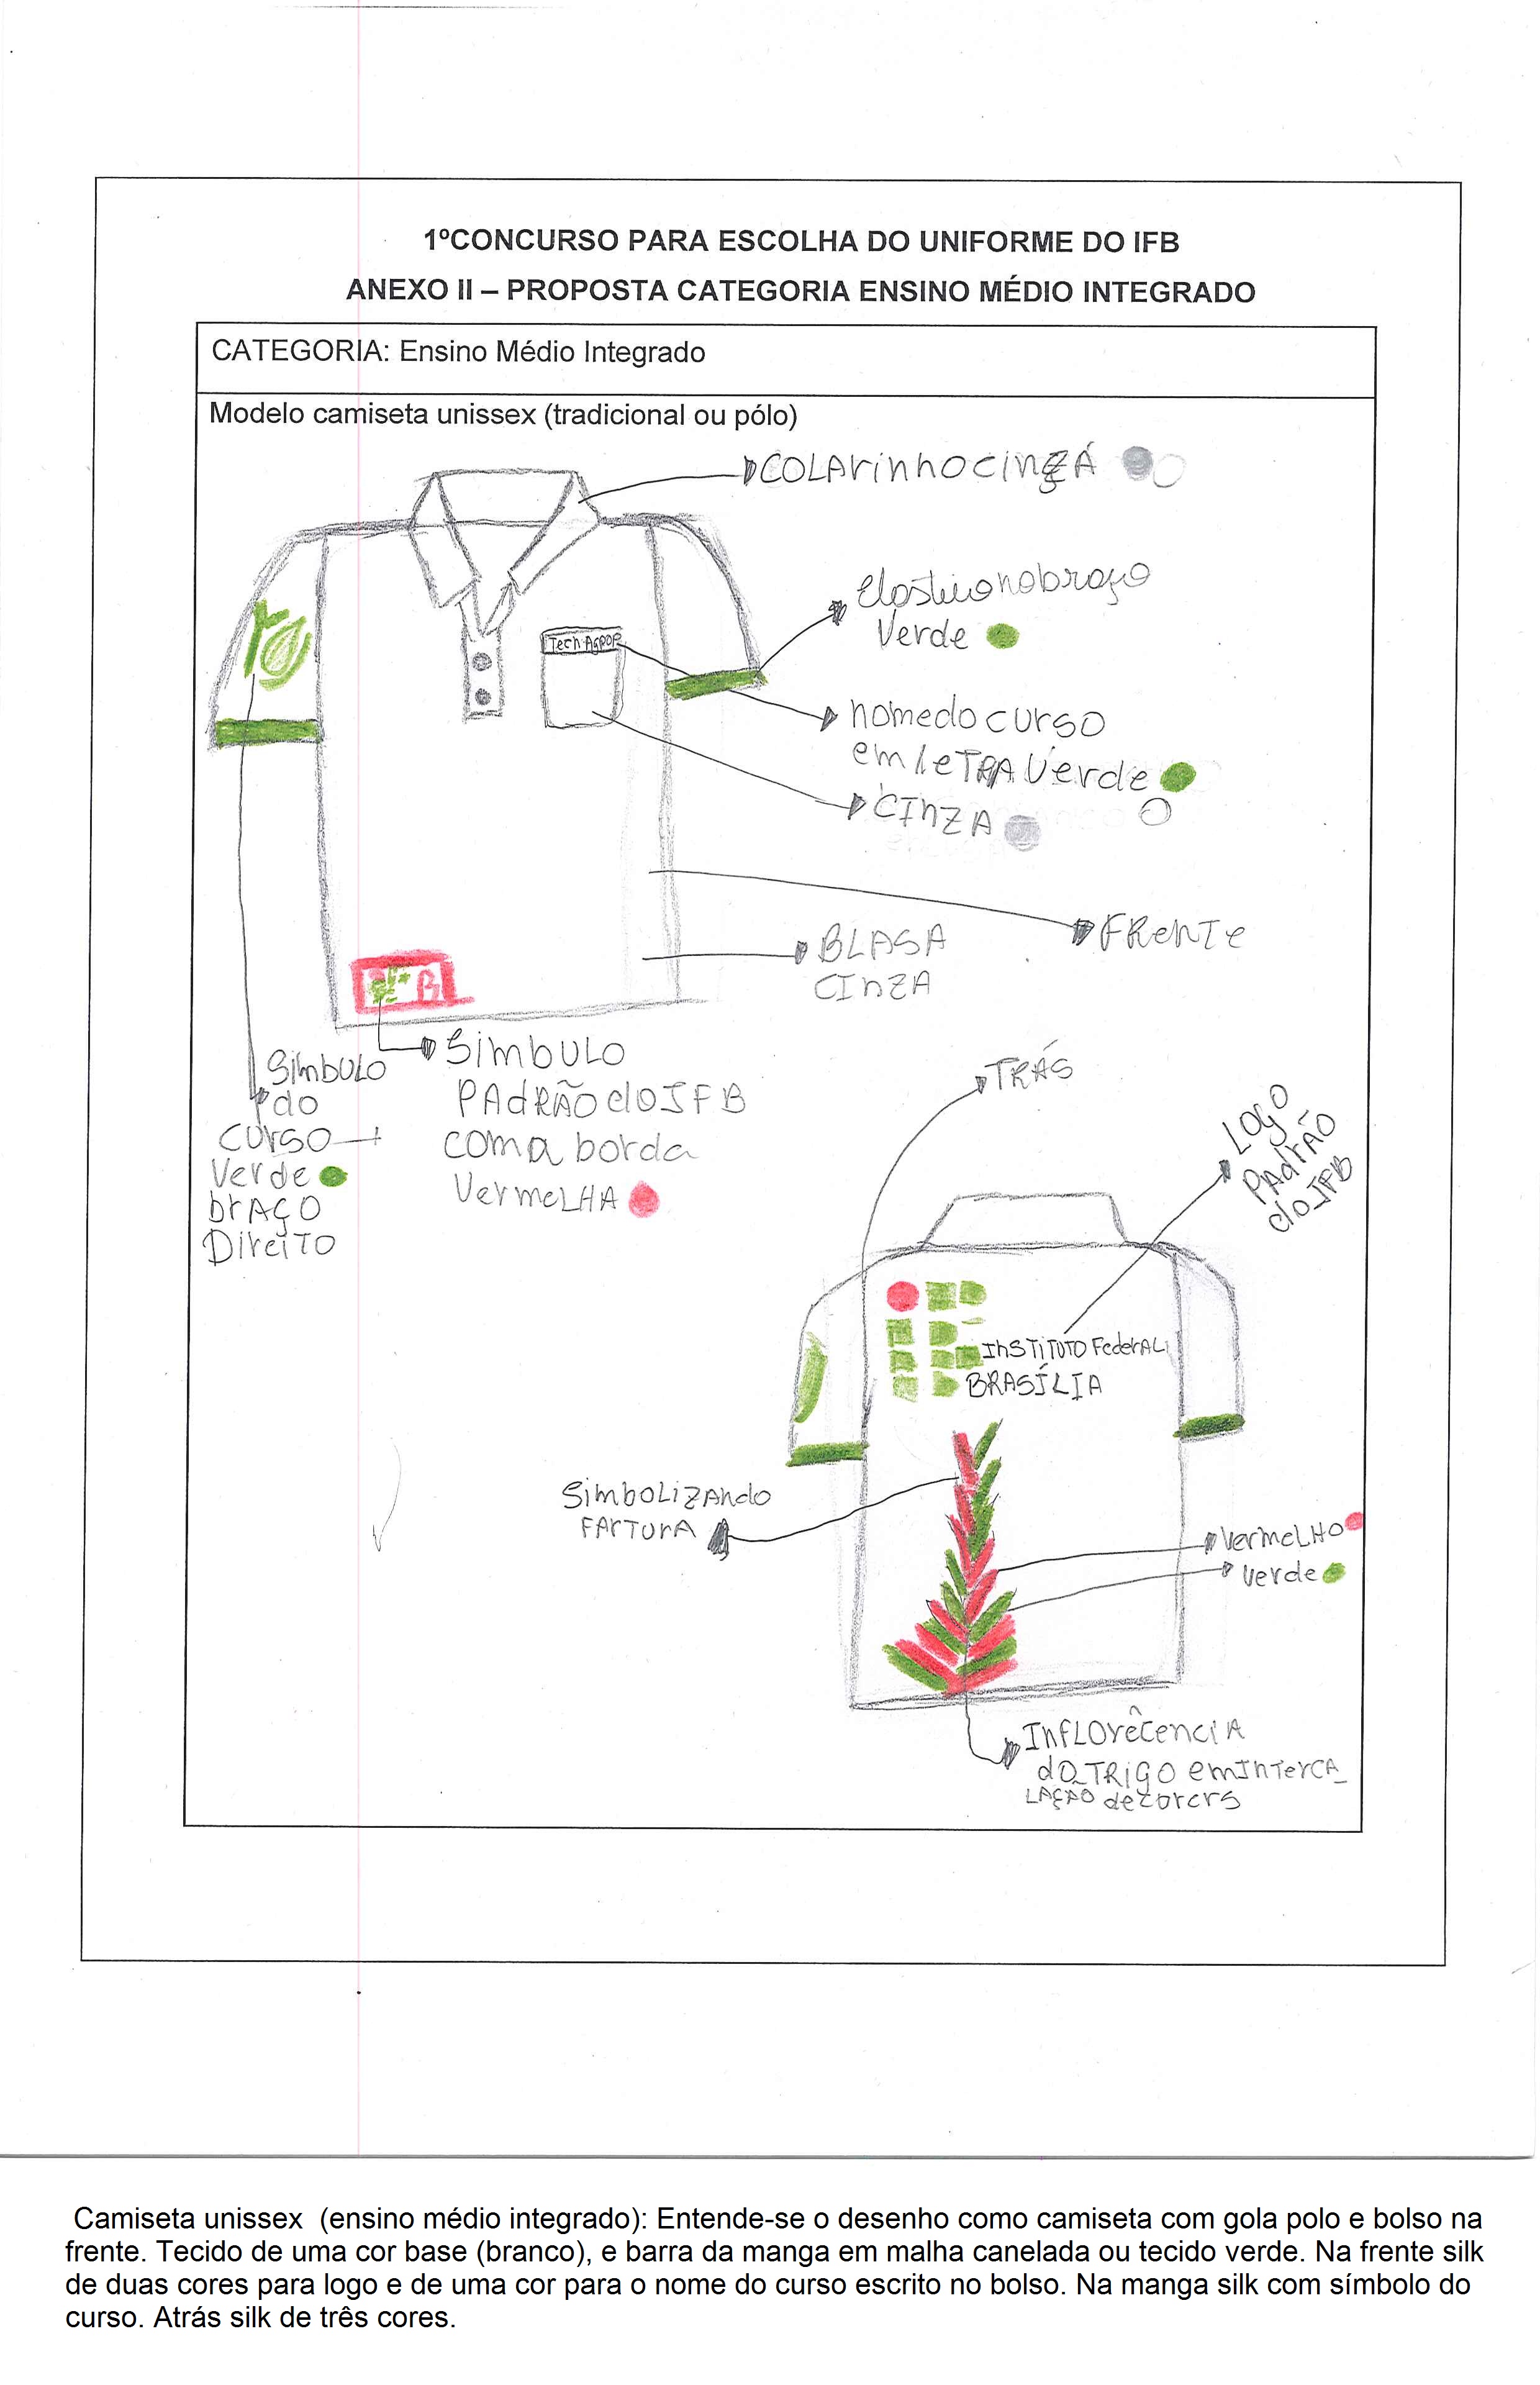 1ºCONCURSO PARA ESCOLHA DO UNIFORME DO IFB
ANEXO II – PROPOSTA CATEGORIA ENSINO MÉDIO INTEGRADO
CATEGORIA: Ensino Médio Integrado
Modelo camiseta unissex (tradicional ou pólo)
COLArinho cinzA
Elastico no braço
Verde
Tech. Agrop
nome do curso
em leTRA Verde
CINZA
FRENTE
BLASA
CINZA
SIMBULO
PADRÃO do IFB
com a borda
VermeLHA
Símbulo
do
CURSO
Verde
brAÇO
DireiTO
TRÁS
LOGO
PAdrÃO
do IFB
InSTiTUTO FederAL
BRASÍLIA
SimboLizAndo
FArTurA
VermeLHO
Verde
InFLOrêcenciA
do TRIGO em InTercA_
LAÇÃO de corers
Camiseta unissex (ensino médio integrado): Entende-se o desenho como camiseta com gola polo e bolso na
frente. Tecido de uma cor base (branco), e barra da manga em malha canelada ou tecido verde. Na frente silk
de duas cores para logo e de uma cor para o nome do curso escrito no bolso. Na manga silk com símbolo do
curso. Atrás silk de três cores.